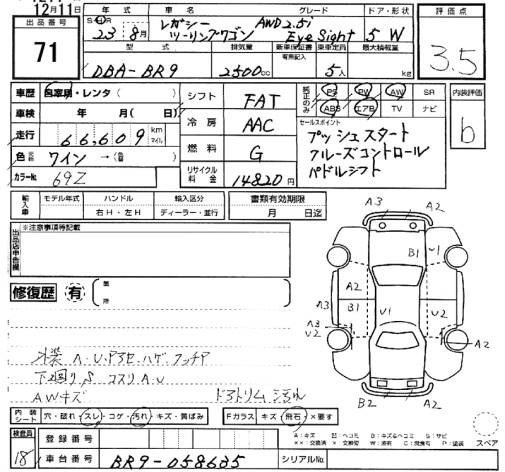 12月11日
出品番号
71
年式
車名
グレード
ドア・形状
評価点
23 8月
レガシー
ツーリングワゴン
AWD 2.5i
Eye Sight
5 W
3.5
型式
排気量
新車保証書
有無記入
乗車定員
最大積載量
DBA-BR9
2500cc
5人
kg
車歴
自家用・レンタ( )
車検
年 月( 日)
走行
66,609 km
マイル
色
ワイン → (
カラーNo
69Z
シフト
FAT
冷房
AAC
燃料
G
リサイクル
料金
14820円
純正のみ
PS PW AW SR
ABS エアB TV ナビ
内装評価
b
セールスポイント
プッシュスタート
クルーズコントロール
パドルシフト
輸入車
モデル年式
ハンドル
右H・左H
輸入区分
ディーラー・並行
書類有効期限
月 日迄
出品店申告欄
※注意事項等記載
修復歴 有
箇所
外装 A・U・P
下廻り コスリ A・U
AWキズ
ドアトリム
A3 A2
B1 U1
A2
B1 U1
A3
U2
U2
A2
B2 A2
内装
シート
穴・破れ・スレ・コゲ・汚れ・キズ・黄ばみ
Fガラス キズ・飛石・×要す
スペア
検査員
18
登録番号
車台番号
BR9-058635
シリアルNo.